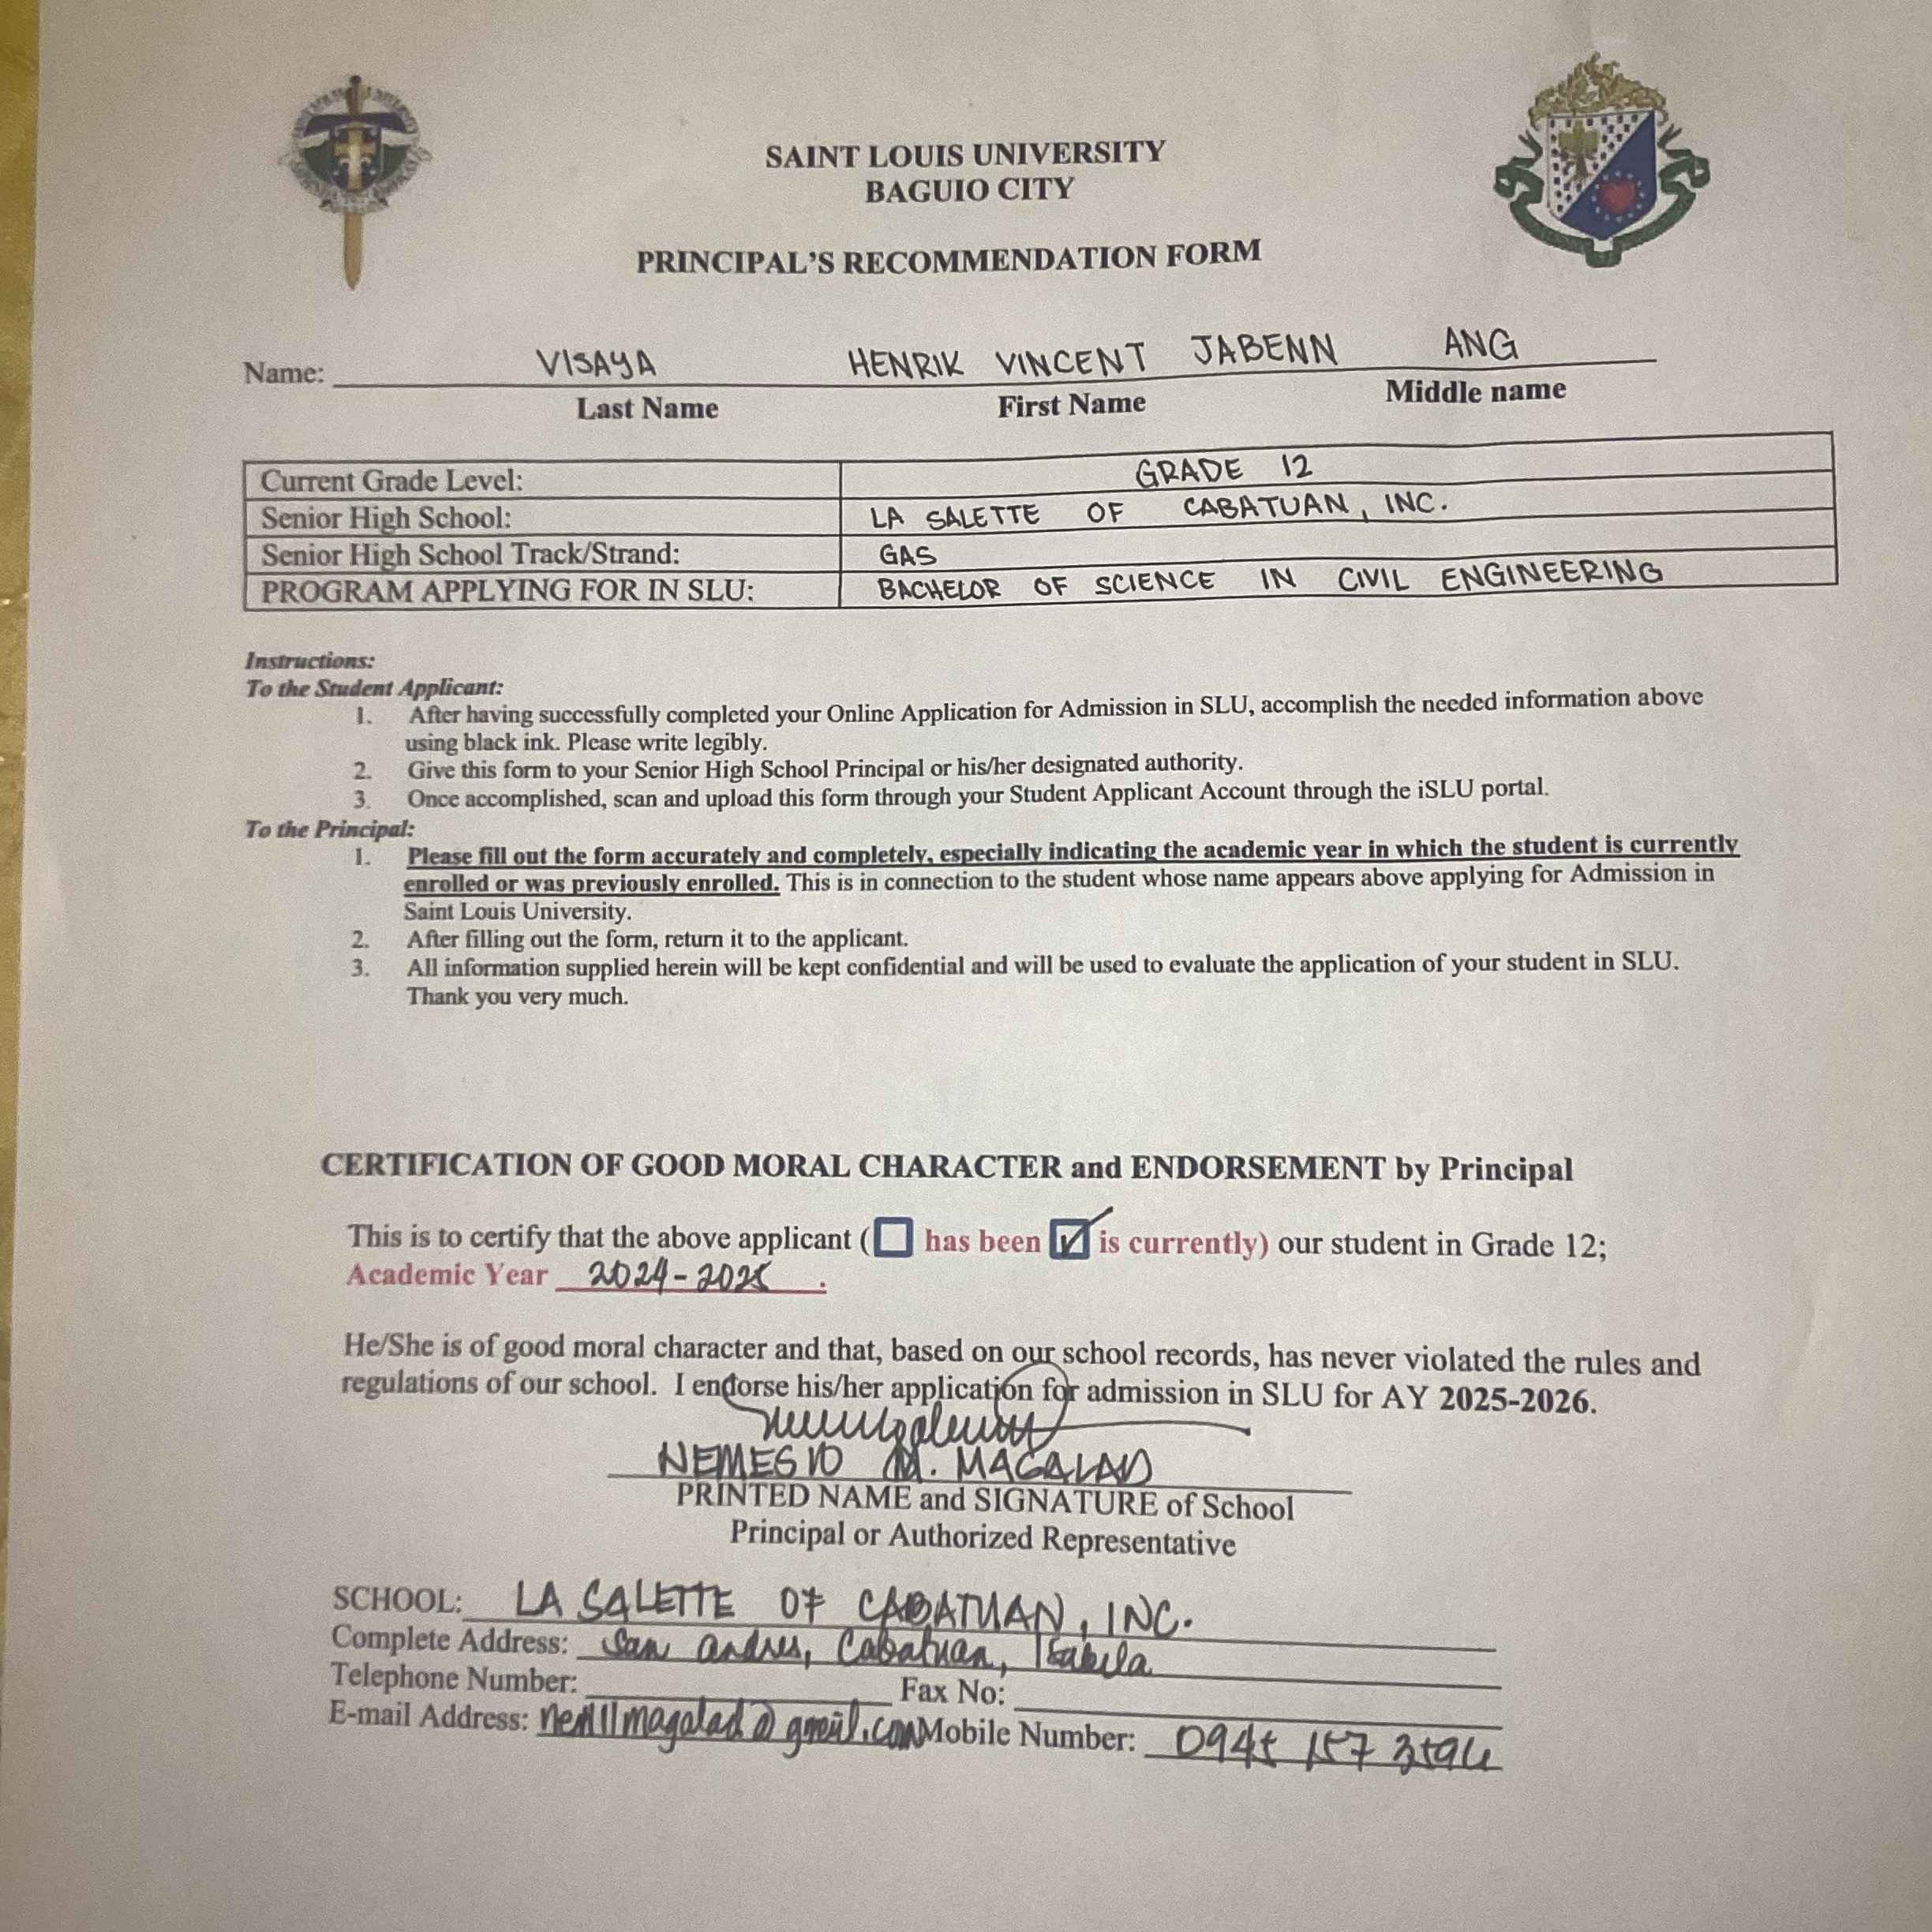 SAINT LOUIS UNIVERSITY
BAGUIO CITY
PRINCIPAL'S RECOMMENDATION FORM
Name: VISAYA HENRIK VINCENT JABENN ANG
Last Name First Name Middle name
Current Grade Level: GRADE 12
Senior High School: LA SALETTE OF CABATUAN, INC.
Senior High School Track/Strand: GAS
PROGRAM APPLYING FOR IN SLU: BACHELOR OF SCIENCE IN CIVIL ENGINEERING
Instructions:
To the Student Applicant:
1. After having successfully completed your Online Application for Admission in SLU, accomplish the needed information above
using black ink. Please write legibly.
2. Give this form to your Senior High School Principal or his/her designated authority.
3. Once accomplished, scan and upload this form through your Student Applicant Account through the iSLU portal.
To the Principal:
1. Please fill out the form accurately and completely, especially indicating the academic year in which the student is currently
enrolled or was previously enrolled. This is in connection to the student whose name appears above applying for Admission in
Saint Louis University.
2. After filling out the form, return it to the applicant.
3. All information supplied herein will be kept confidential and will be used to evaluate the application of your student in SLU.
Thank you very much.
CERTIFICATION OF GOOD MORAL CHARACTER and ENDORSEMENT by Principal
This is to certify that the above applicant (☐ has been ☑ is currently) our student in Grade 12;
Academic Year 2024-2025.
He/She is of good moral character and that, based on our school records, has never violated the rules and
regulations of our school. I endorse his/her application for admission in SLU for AY 2025-2026.
NEMESIO M. MAGALAD
PRINTED NAME and SIGNATURE of School
Principal or Authorized Representative
SCHOOL: LA SALETTE OF CABATUAN, INC.
Complete Address: San Andres, Cabatuan, Isabela
Telephone Number: Fax No:
E-mail Address: nem11magalad@gmail.com Mobile Number: 0945 157